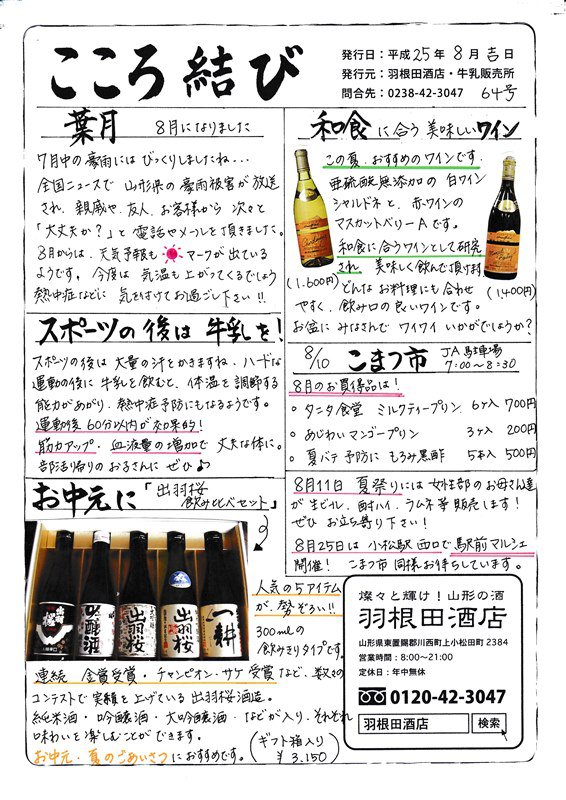 こころ結び
発行日：平成25年8月吉日
発行元：羽根田酒店・牛乳販売所
問合先：0238-42-3047 64号
葉月 8月になりました
7月中の豪雨にはびっくりしましたね...
全国ニュースで 山形県の豪雨被害が放送
され、親戚や、友人、お客様から 次々と
「大丈夫か？」と電話やメールを頂きました。
8月からは、天気予報も マークが出ている
ようです。今度は 気温も上がってくるでしょう
熱中症などに 気を付けてお過ごし下さい!!
スポーツの後は 牛乳を!
スポーツの後は 大量の汗をかきますね、ハードな
運動の後に 牛乳を飲むと、体温を調節する
能力があがり、熱中症予防にもなるようです。
運動後 60分以内が効果的!
筋力アップ・血液量の増加で 丈夫な体に。
部活帰りのお子さんに ぜひ♪
お中元に「出羽桜
飲み比べセット」
出羽桜
吟醸酒
出羽桜
出羽桜
一耕
人気の5アイテム
が、勢ぞろい!!
300mlの
飲みきりタイプです。
連続 金賞受賞・チャンピオン・サケ受賞など、数々の
コンテストで実績を上げている 出羽桜酒造。
純米酒・吟醸酒・大吟醸酒・などが入り、それぞれ
味わいを楽しむことができます。
お中元・夏のごあいさつにおすすめです。
(ギフト箱入り)
¥3,150
和食に合う美味しいワイン
この夏、おすすめのワインです。
亜硫酸無添加の 白ワイン
シャルドネと、赤ワインの
マスカットベリーAです。
和食に合うワインとして研究
され、美味しく飲んで頂けます
(1,600円)
(1,400円)
どんなお料理にも合わせ
やすく、飲み口の良いワインです。
お盆に みなさんで ワイワイ いかがでしょうか?
8/10 こまつ市 JA駐車場
7:00～8:30
8月のお買得品は!
。タニタ食堂 ミルクティープリン 6ヶ入 700円
。あじわいマンゴープリン 3ヶ入 200円
。夏バテ予防に もろみ黒酢 5本入 500円
8月11日 夏祭りには 女性部のお母さん達
が 生ビール、酎ハイ、ラムネ等 販売します!
ぜひ お立ち寄り下さい!
8月25日は 小松駅 西口で 駅前マルシェ
開催! こまつ市 同様お待ちしています。
燦々と輝け！山形の酒
羽根田酒店
山形県東置賜郡川西町上小松田町2384
営業時間：8:00～21:00
定休日：年中無休
0120-42-3047
羽根田酒店 検索